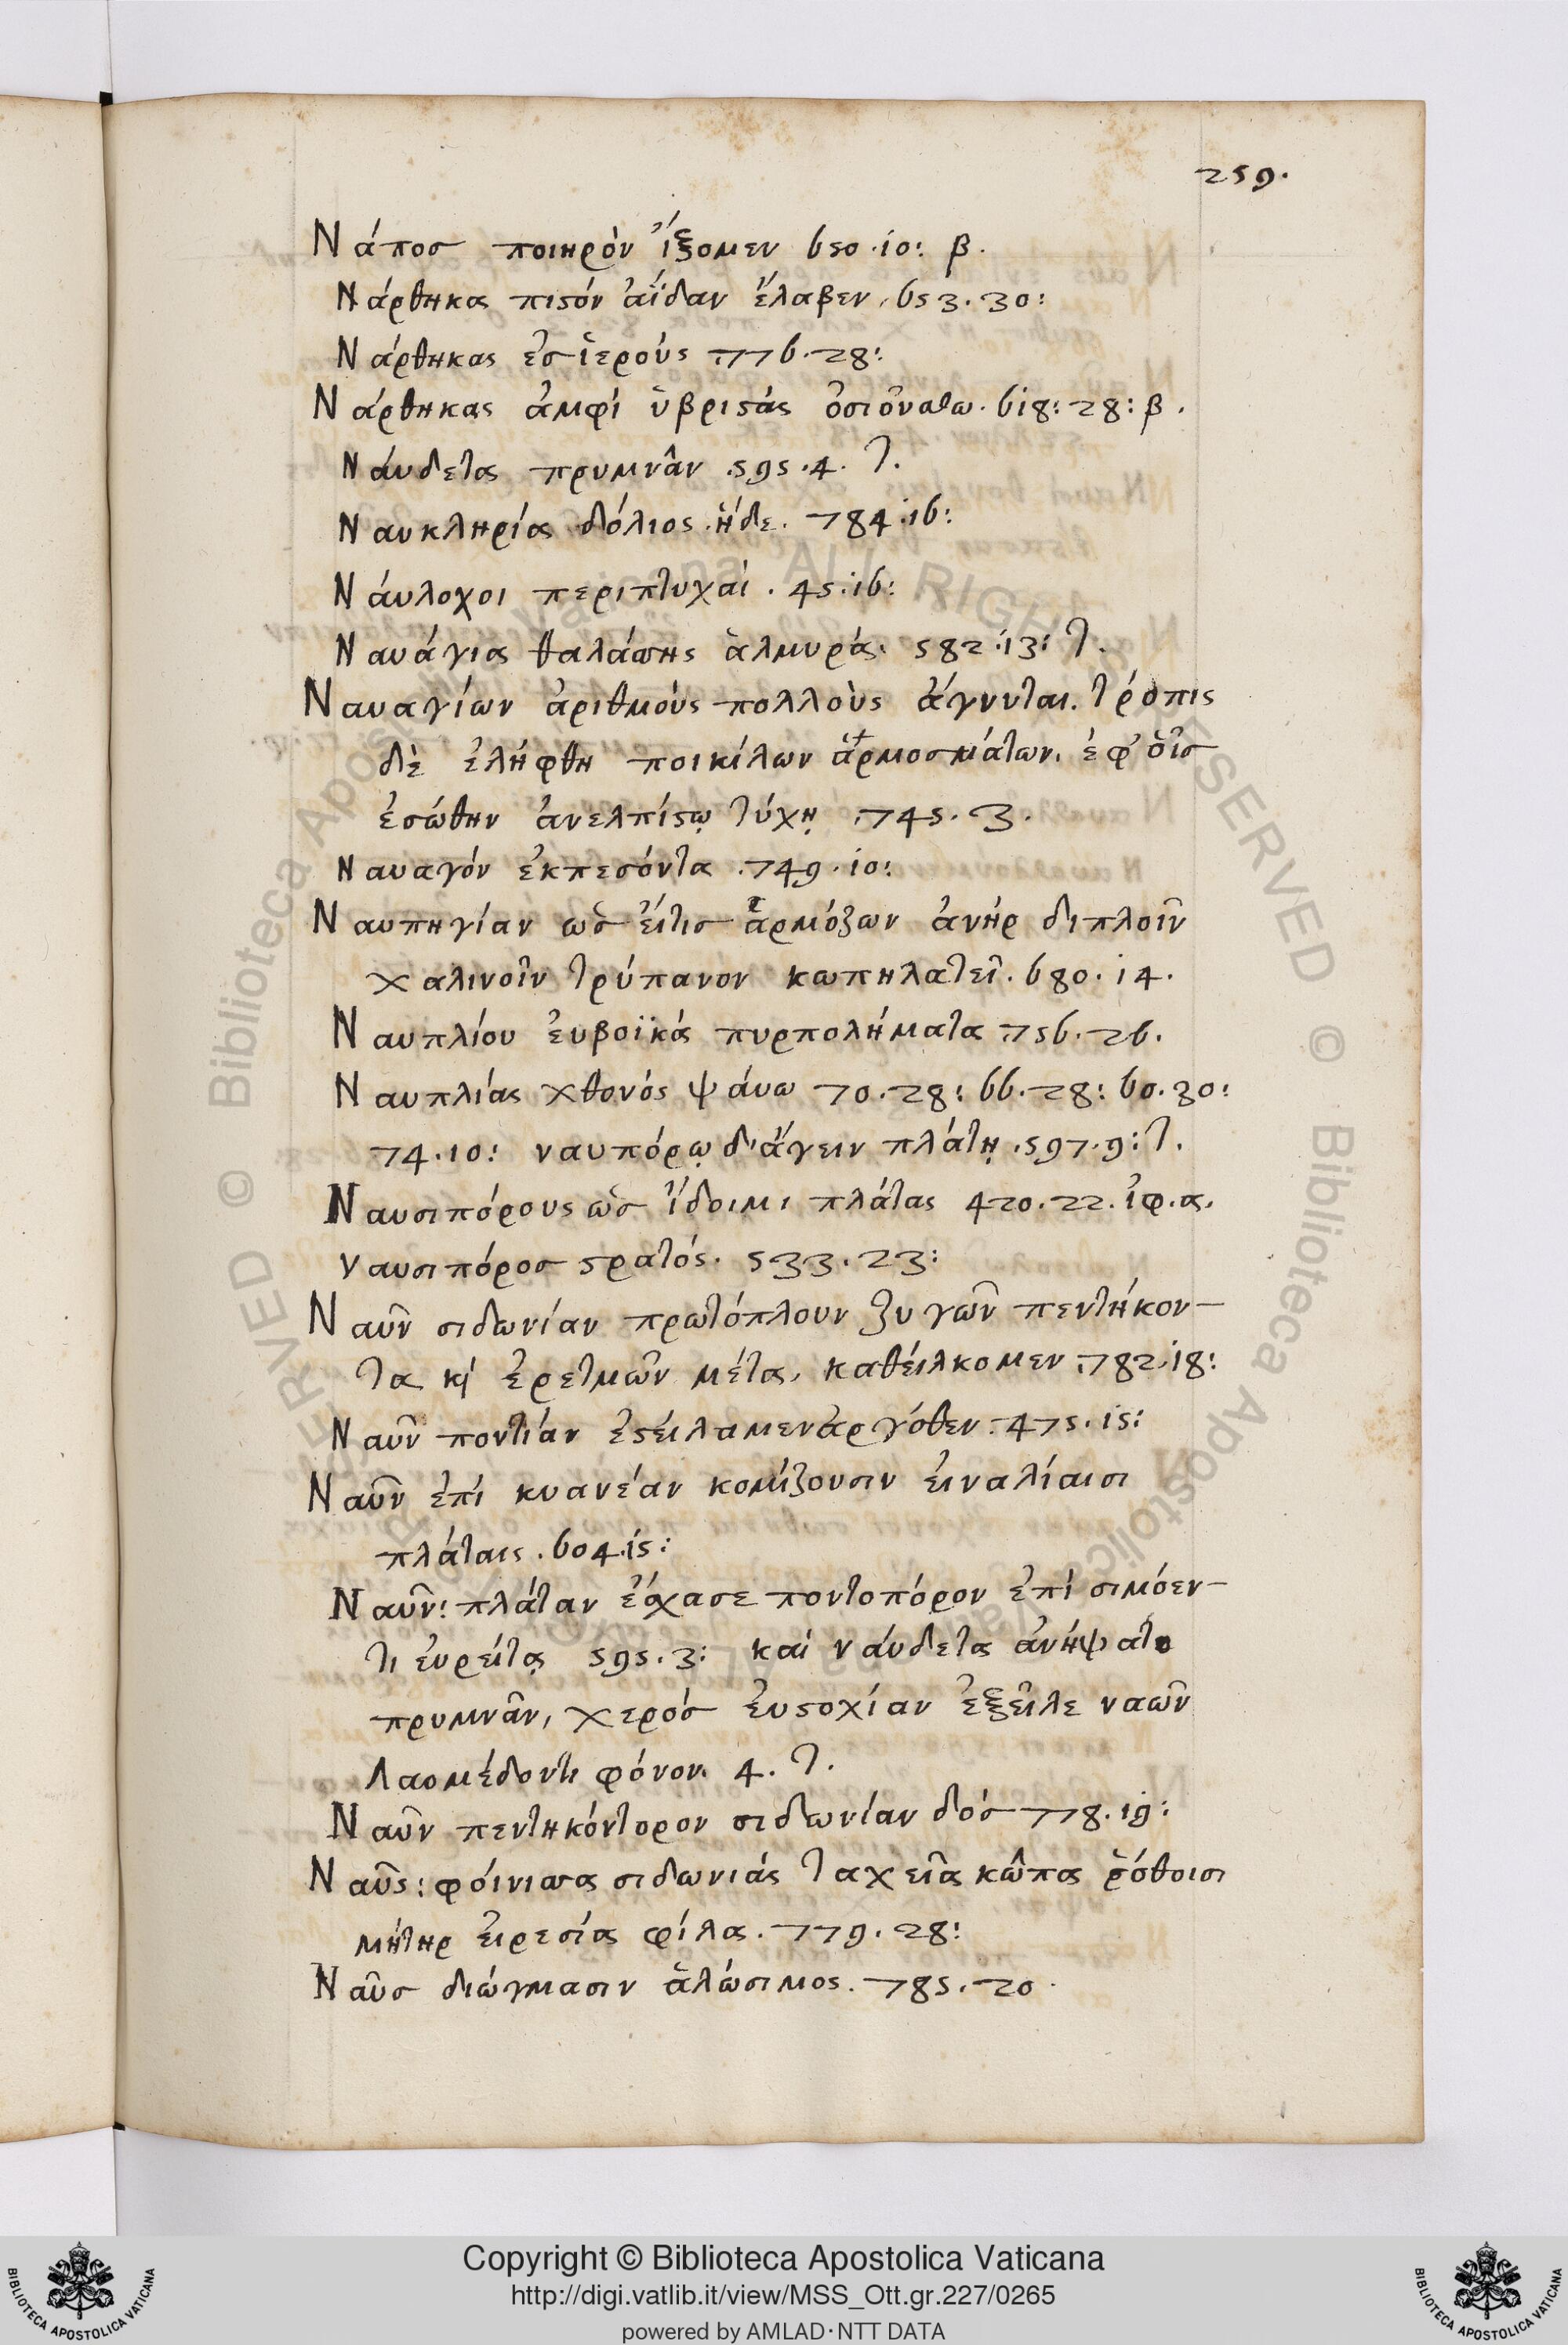 259.
Νάποσ ποιηρὸν ἵξομεν 650.10: β.
Νάρθηκα πιϛόν ἀΐδαν ἔλαβεν, 653.30:
Νάρθηκας ἐσ ἱερούς .776.28:
Νάρθηκας ἀμφί ὑβριϛάς ὁσιοῦσθω. 618:28: β.
Νάυδετα πρυμνᾶν .595.4. τ.
Ναυκληρία δόλιος ἥδε. 784.16:
Νάυλοχοι περιπτυχαί. 45.16:
Ναυάγια θαλάσσης ἁλμυρά. 582.13: τ.
Ναυαγίων ἀριθμούς πολλοὺς ἄγνυται. τρόπις
δὲ ἐλήφθη ποικίλων ἁρμοσμάτων. ἐφ' οἷσ
ἐσώθην ἀνελπίϛῳ τύχῃ .745.3.
Ναυαγόν ἐκπεσόντα .749.10:
Ναυπηγίαν ὡσ ἔιτισ ἁρμόζων ἀνήρ διπλοῖν
χαλινοῖν τρύπανον κωπηλατεῖ. 680.14.
Ναυπλίου ἐυβοϊκά πυρπολήματα 756.26.
Ναυπλίας χθονός ψάυω 70.28: 66.28: 60.30:
74.10: ναυπόρῳ δ'ἄγειν πλάτῃ .597.9: τ.
Ναυσιπόρους ὡσ ἴδοιμι πλάτας 420.22. ἰφ.α.
ναυσιπόροσ ϛρατός. 533.23:
Ναῦν σιδωνίαν πρωτόπλουν ζυγῶν πεντήκον-
τα κἠ ἐρετμῶν μέτα, καθέιλκομεν .782.18:
Ναῦν ποντίαν ἐϛέιλαμεν ἀργόθεν. 475.15:
Ναῦν ἐπί κυανέαν κομίζουσιν ἐιναλίαισι
πλάταις. 604.15:
Ναῦν: πλάταν ἔσχασε ποντοπόρον ἐπί σιμόεν-
τι ἐυρείτᾳ 595.3: καί νάυδετα ἀνήψατο
πρυμνᾶν, χερόσ ἐυϛοχίαν ἐξεῖλε ναῶν
λαομέδοντι φόνον. 4. τ.
Ναῦν πεντηκόντορον σιδωνίαν δόσ 778.19:
Ναῦς: φόινισσα σιδωνιάς ταχεῖα κῶπα ῥόθοισι
μήτηρ ἐιρεσία φίλα. 779.28:
Ναῦσ διώγμασιν ἁλώσιμος. 785.20.
Copyright © Biblioteca Apostolica Vaticana
http://digi.vatlib.it/view/MSS_Ott.gr.227/0265
powered by AMLAD·NTT DATA